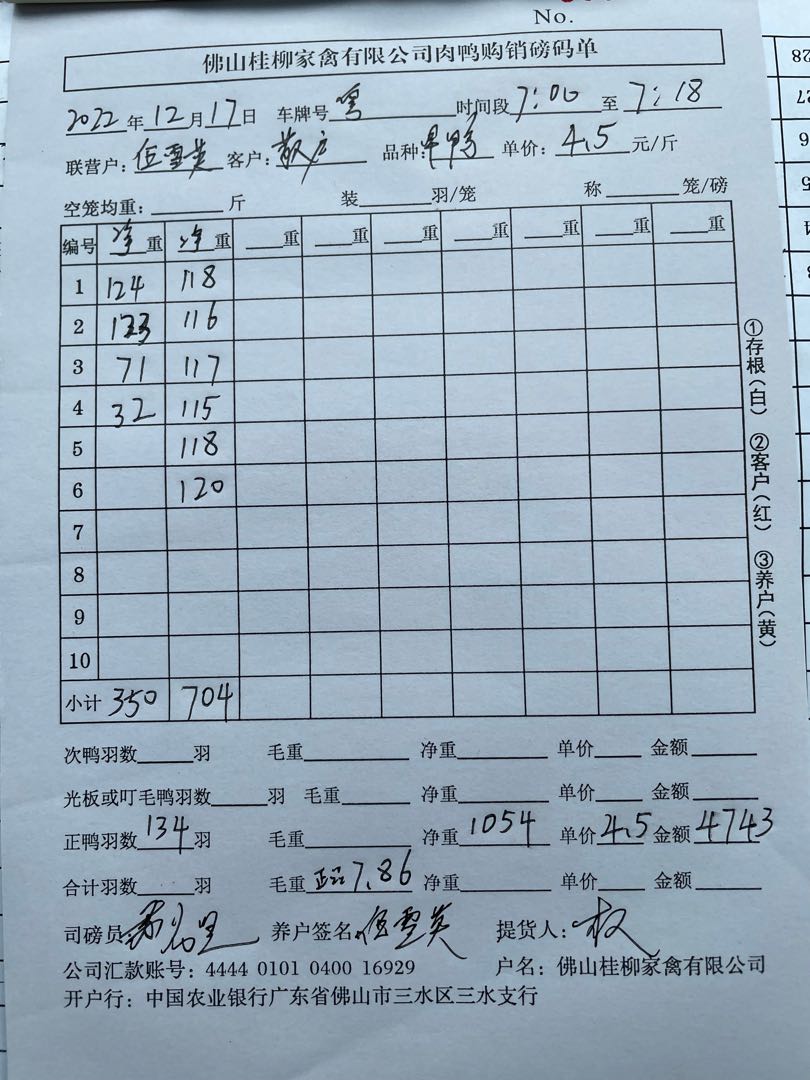 No.
佛山桂柳家禽有限公司肉鸭购销磅码单
2022年12月17日 车牌号 时间段7:00至7:18
联营户:伍雪英 客户:散户 品种: 鸭 单价:4.5元/斤
空笼均重:______斤 装______羽/笼 称______笼/磅
编号 净重 净重 ___重 ___重 ___重 ___重 ___重 ___重 ___重
1 124 118
2 123 116
3 71 117
4 32 115
5 118
6 120
7
8
9
10
小计 350 704
次鸭羽数_____羽 毛重_____ 净重_____ 单价____ 金额_____
光板或叮毛鸭羽数_____羽 毛重_____ 净重_____ 单价____ 金额_____
正鸭羽数134羽 毛重_____ 净重1054 单价4.5 金额4743
合计羽数_____羽 毛重 7.86 净重_____ 单价____ 金额_____
司磅员: 养户签名:伍雪英 提货人:权
公司汇款账号: 4444 0101 0400 16929 户名: 佛山桂柳家禽有限公司
开户行: 中国农业银行广东省佛山市三水区三水支行
①存根(白) ②客户(红) ③养户(黄)